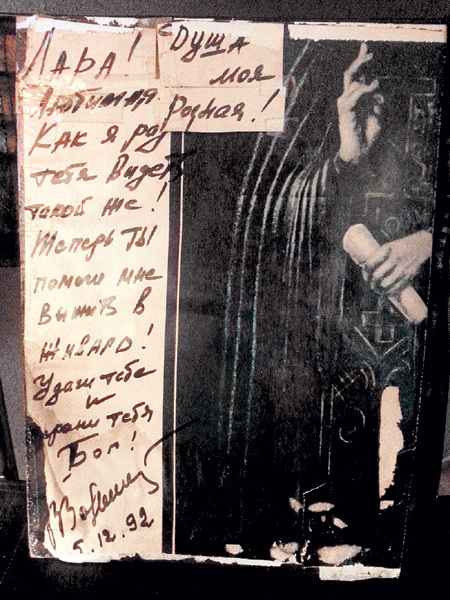 Лара! Душа
моя
Любимая. Родная!
Как я рад
тебя видеть
такой же!
Теперь ты
помоги мне
выжить в
Живаго!
Удачи тебе
и
храни тебя
Бог!
5.12.92